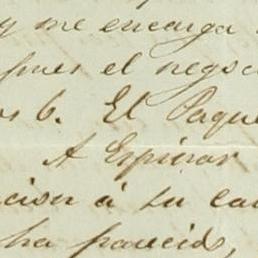 y me encarga
pues el negoc
s 6. El Paque
A Espinar
cion á su ca
ha parecido,